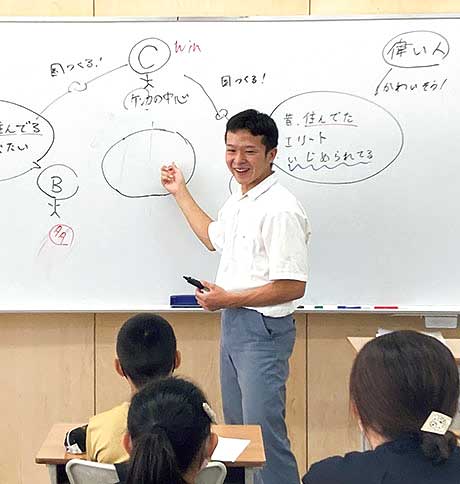 C
win
偉い人
国つくる!
国つくる!
かわいそう!
ケンカの中心
住んでる
たい
昔、住んでた
エリート
いじめられてる
B